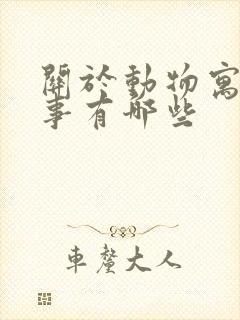 關於動物寓
事有哪些
車鏖大人